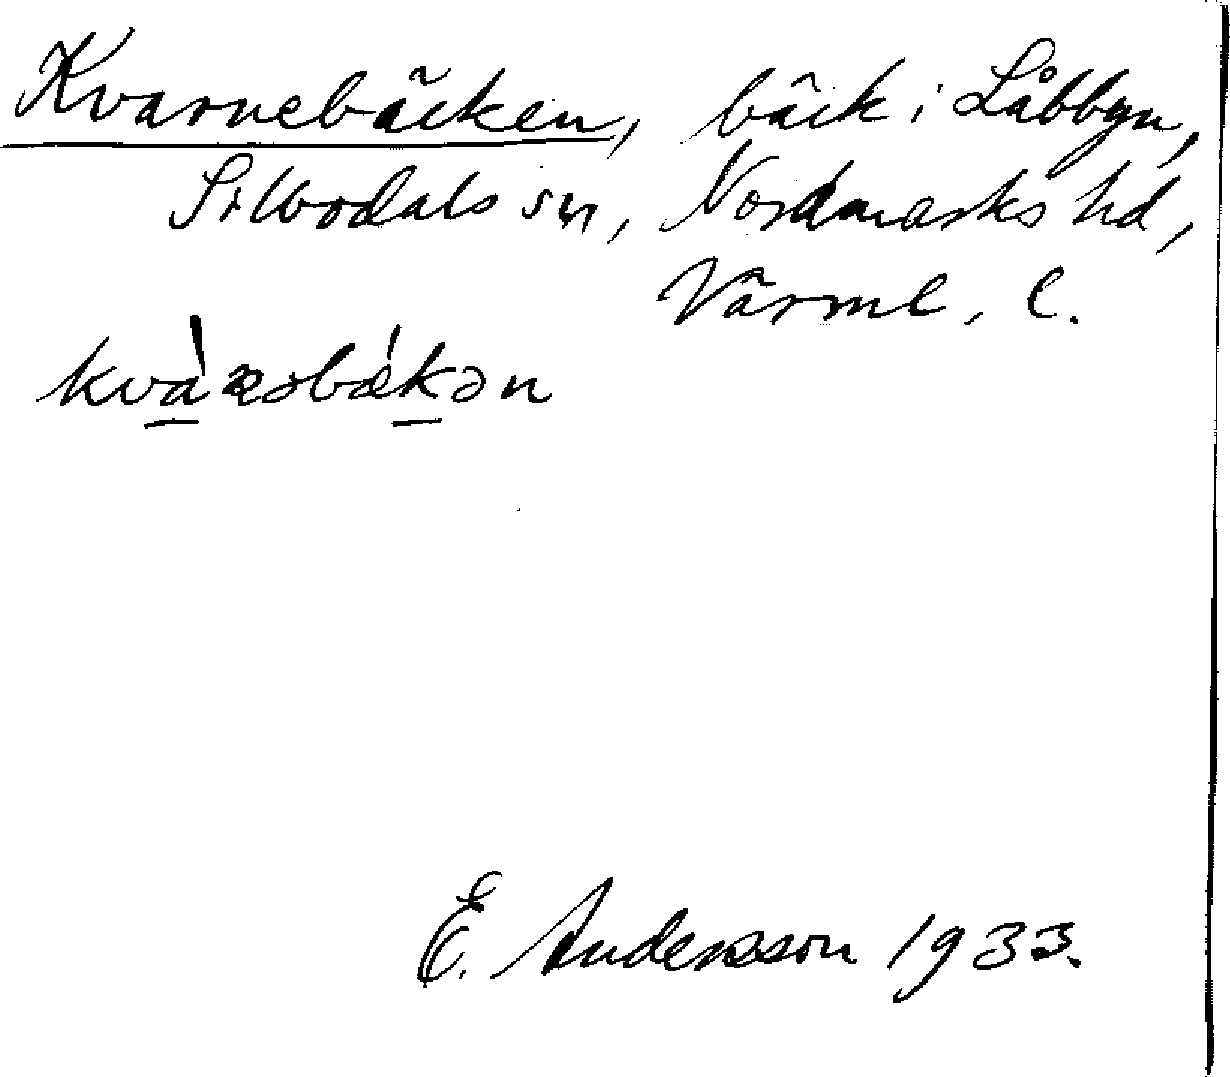 Kvarnebäcken, bäck i Låbbyn,
Silbodals sn, Nordmarks hd,
Värml. l.
kvàrəbǽkən
E. Andersson 1933.